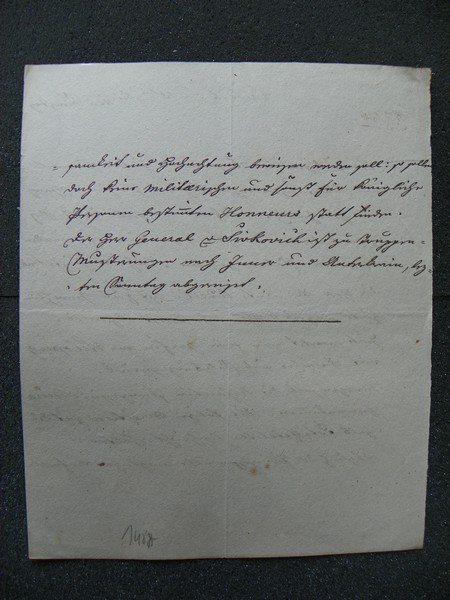 = samkeit und Hochachtung bewiesen werden soll: so sollen
doch keine militärischen und sonst für Königliche
Personen bestimmten Honneurs statt finden.
Der Herr General v Siwkovich ist zu Truppen=
Musterungen nach Inner und Unterkrain, lez=
ten Sonntag abgereist.